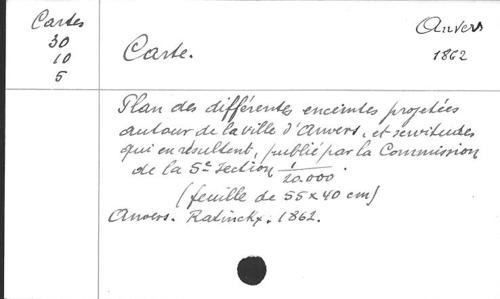 Cartes
30
10
5
Anvers
1862
Carte.
Plan des différentes enceintes projetées
autour de la ville d'Anvers, et servitudes
qui en résultent, publié par la Commission
de la 5e Section 1/20.000.
(feuille de 55 x 40 cm)
Anvers. Ratinckx. 1862.